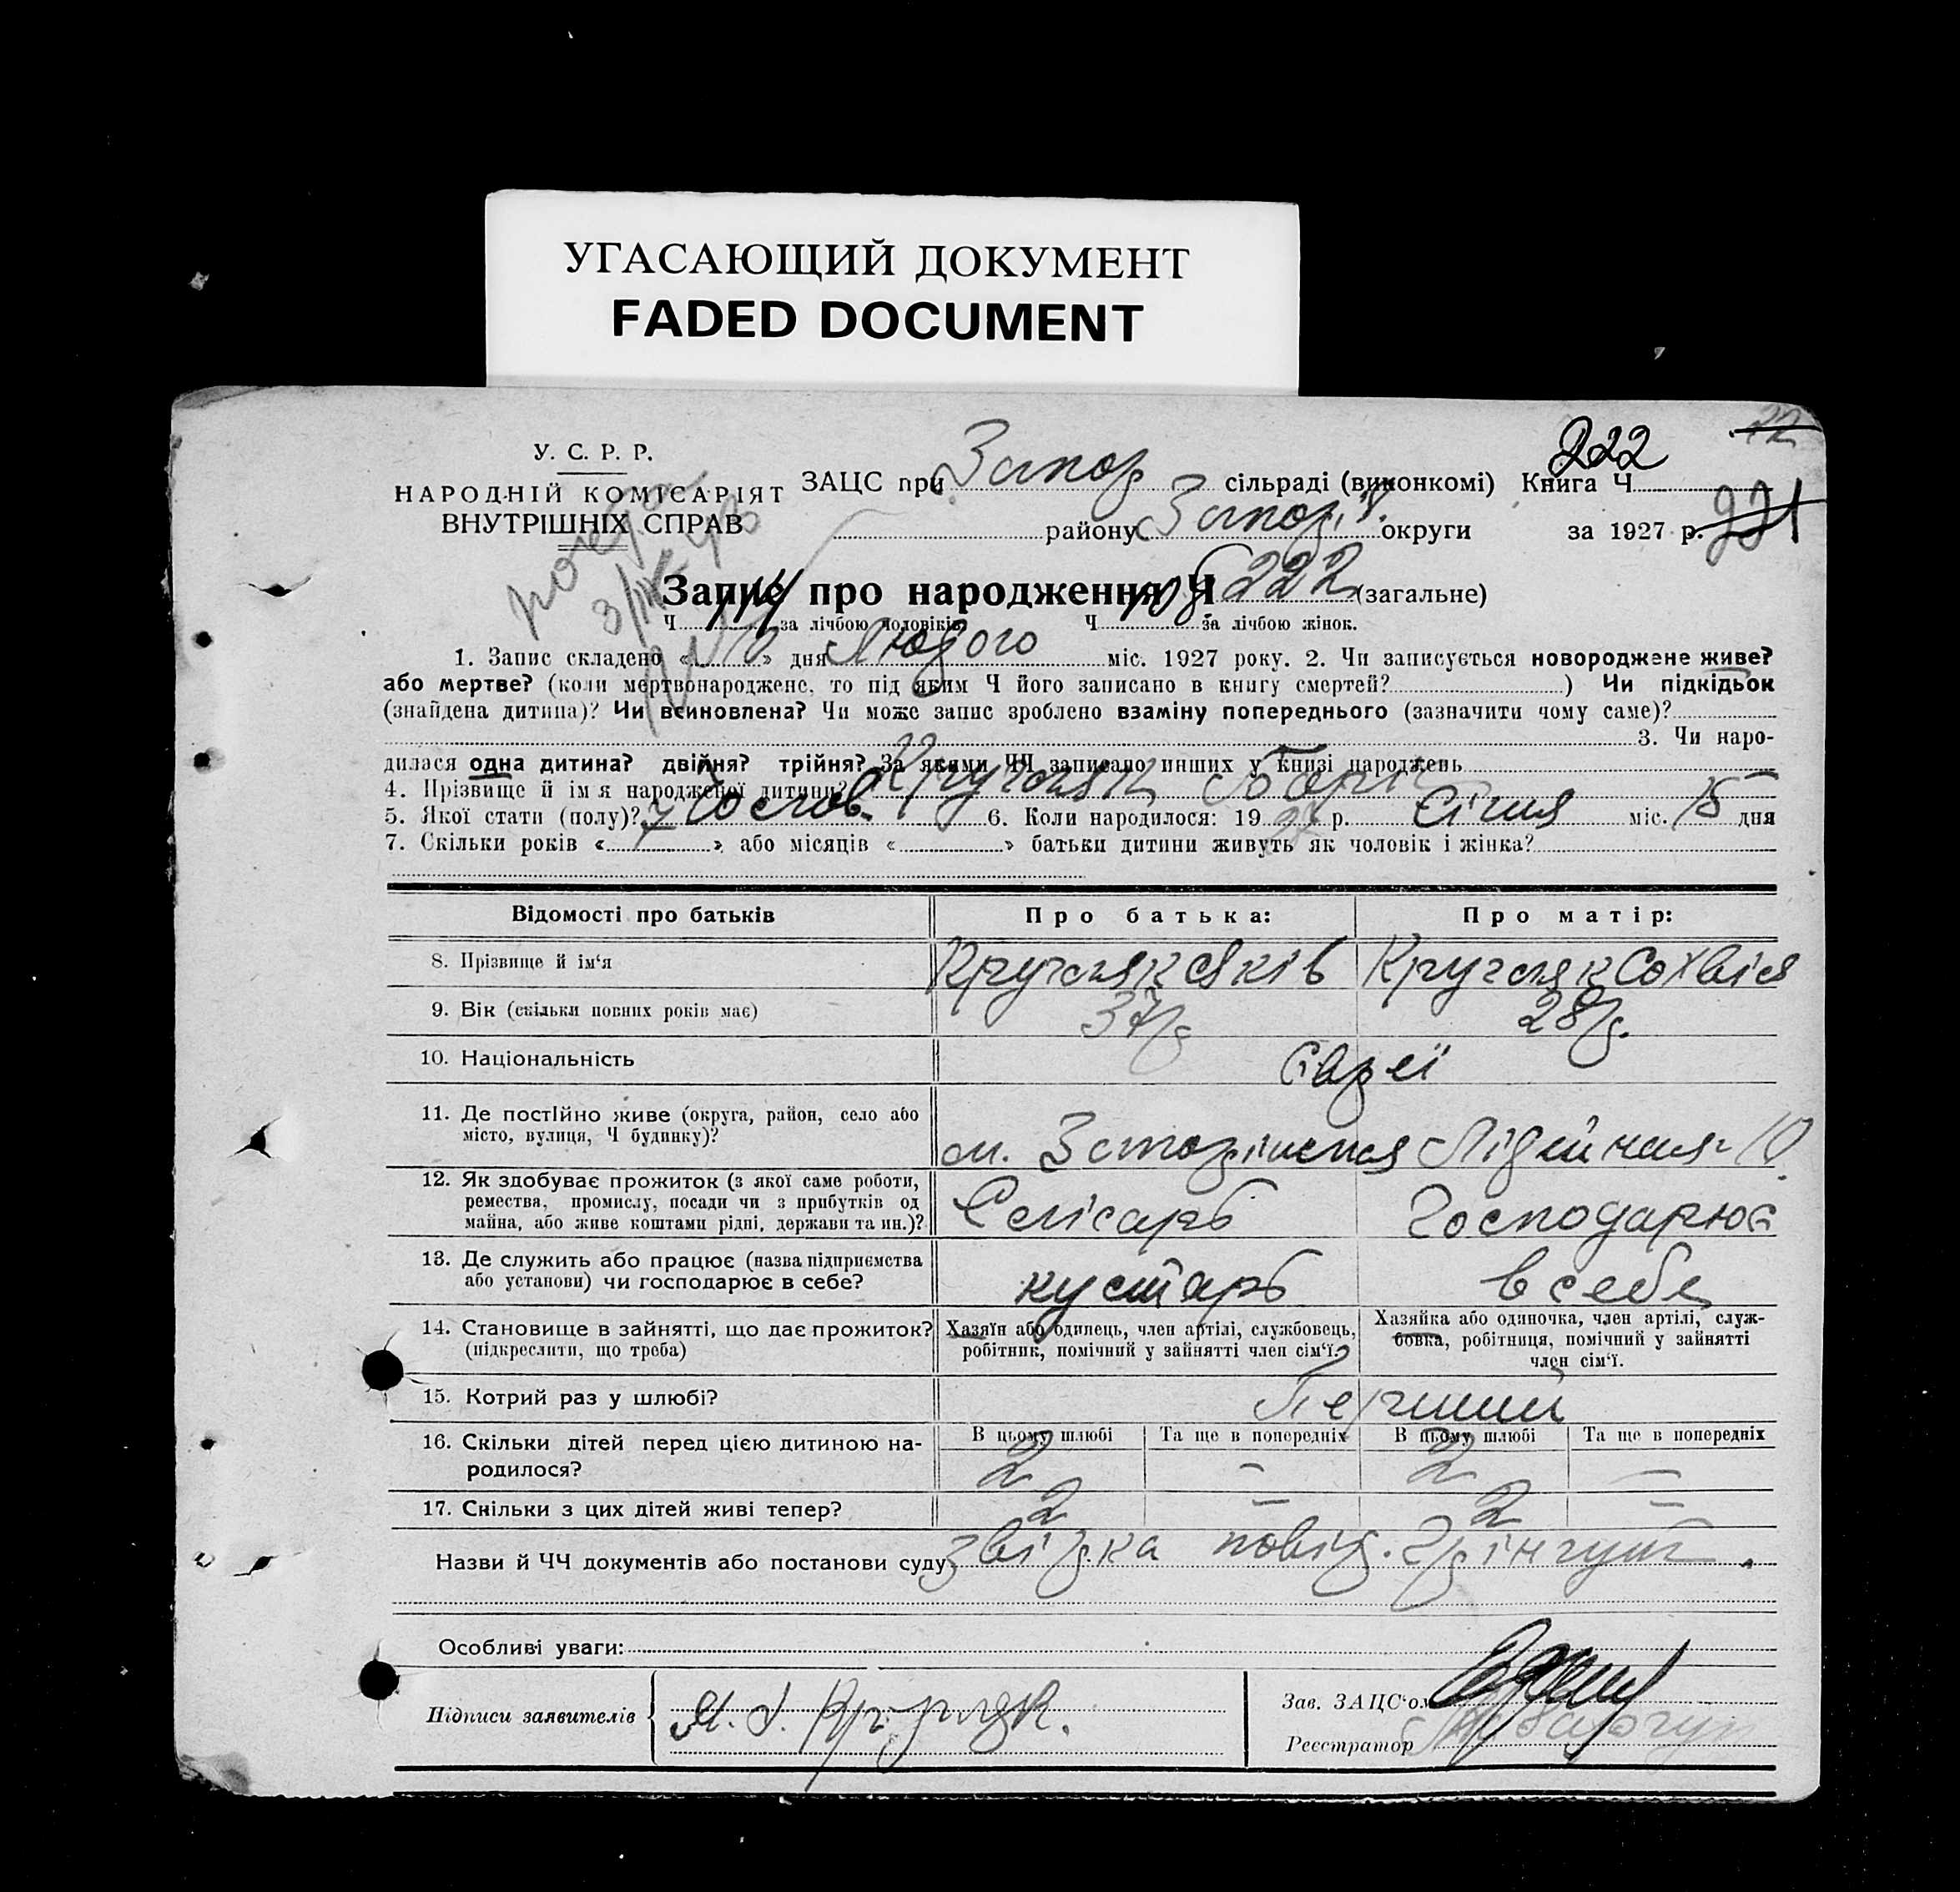 УГАСАЮЩИЙ ДОКУМЕНТ
FADED DOCUMENT
22
У. С. Р. Р.
НАРОДНІЙ КОМІСАРІЯТ
ВНУТРІШНІХ СПРАВ
ЗАЦС при Запор сільраді (виконкомі) Книга Ч 222
району Запоріз. округи за 1927 р. 221
Запис про народження Ч 222 (загальне)
Ч 114 за лічбою чоловіків Ч 108 за лічбою жінок.
1. Запис складено «10» дня Лютого міс. 1927 року. 2. Чи записується новороджене живе?
або мертве? (коли мертвонароджене, то під яким Ч його записано в книгу смертей?) Чи підкідьок
(знайдена дитина)? Чи всиновлена? Чи може запис зроблено взаміну попереднього (зазначити чому саме)?
3. Чи наро-
дилася одна дитина? двійня? трійня? За якими ЧЧ записано инших у книзі народжень
4. Прізвище й ім'я народженої дитини? Кругляк Борис
5. Якої стати (полу)? Чолов. 6. Коли народилося: 1927 р. Січня міс. 15 дня
7. Скільки років «7» або місяців «» батьки дитини живуть як чоловік і жінка?
Відомості про батьків Про батька: Про матір:
8. Прізвище й ім'я Кругляк Яків Кругляк Сохвія
9. Вік (скільки повних років має) 37 р. 28 р.
10. Національність Євреї
11. Де постійно живе (округа, район, село або
місто, вулиця, Ч будинку)? м. Запоріжжя Лідейная 10
12. Як здобуває прожиток (з якої саме роботи,
ремества, промислу, посади чи з прибутків од
майна, або живе коштами рідні, держави та ин.)? Слісарь Господарює
13. Де служить або працює (назва підприємства
або установи) чи господарює в себе? кустарь в себе
14. Становище в зайнятті, що дає прожиток?
(підкреслити, що треба)
Хазяїн або одинець, член артілі, службовець,
робітник, помічний у зайнятті член сім'ї.
Хазяйка або одиночка, член артілі, служ-
бовка, робітниця, помічний у зайнятті
член сім'ї.
15. Котрий раз у шлюбі? Перший
В цьому шлюбі Та ще в попередніх В цьому шлюбі Та ще в попередніх
16. Скільки дітей перед цією дитиною на-
родилося? 2 – 2 –
17. Скільки з цих дітей живі тепер? 2 – 2 –
Назви й ЧЧ документів або постанови суду звідка повід.
Особливі уваги:
Підписи заявителів Я. Кругляк.
Зав. ЗАЦС'ом
Реєстратор